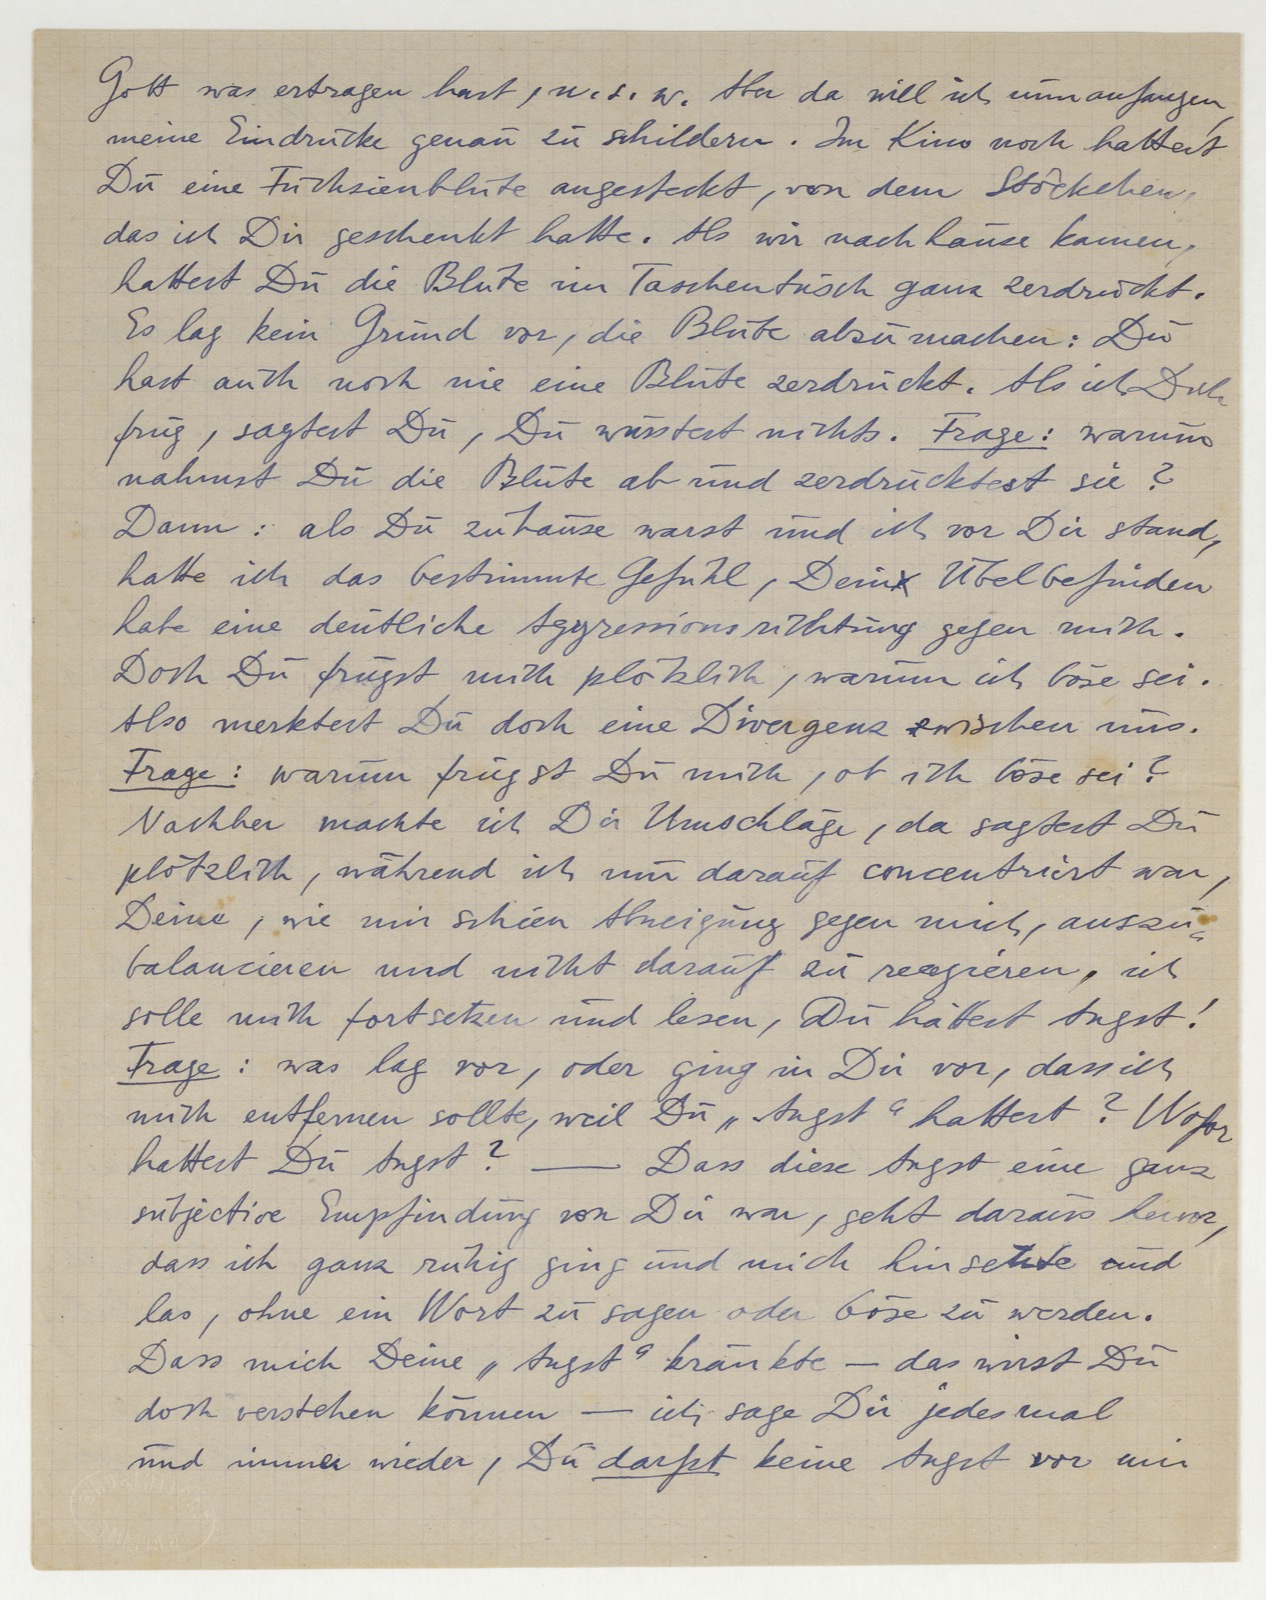 Gott was ertragen hast, u.s.w. Aber da will ich nun anfangen,
meine Eindrücke genau zu schildern. Im Kino noch hattest
Du eine Fuchsienblüte angesteckt, von dem Stöckchen,
das ich Dir geschenkt hatte. Als wir nachhause kamen,
hattest Du die Blüte im Taschentusch ganz zerdrückt.
Es lag kein Grund vor, die Blüte abzumachen: Du
hast auch noch nie eine Blüte zerdrückt. Als ich Dich
frug, sagtest Du, Du wüsstest nichts. Frage: warum
nahmst Du die Blüte ab und zerdrücktest sie?
Dann: als Du zuhause warst und ich vor Dir stand,
hatte ich das bestimmte Gefühl, Dein Übelbefinden
habe eine deutliche Aggressionsrichtung gegen mich.
Doch Du frugst mich plötzlich, warum ich böse sei.
Also merktest Du doch eine Divergenz zwischen uns.
Frage: warum frugst Du mich, ob ich böse sei?
Nachher machte ich Dir Umschläge, da sagtest Du
plötzlich, während ich nur darauf concentriert war,
Deine, wie mir schien Abneigung gegen mich, auszu-
balancieren und nicht darauf zu reagieren, ich
solle mich fortsetzen und lesen, Du hättest Angst!
Frage: was lag vor, oder ging in Dir vor, dass ich
mich entfernen sollte, weil Du „Angst“ hattest? Wofor
hattest Du Angst? — Dass diese Angst eine ganz
subjective Empfindung von Dir war, geht daraus hervor,
dass ich ganz ruhig ging und mich hinsetzte und
las, ohne ein Wort zu sagen oder böse zu werden.
Dass mich Deine „Angst“ kränkte — das wirst Du
doch verstehen können — ich sage Dir jedesmal
und immer wieder, Du darfst keine Angst vor mir